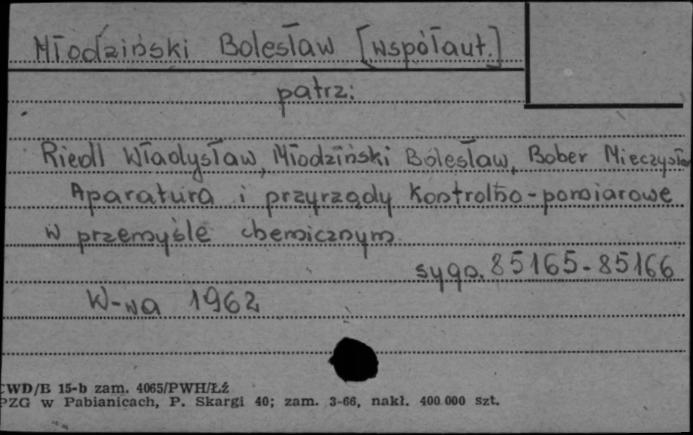 Młodziński Bolesław [współaut.]
patrz:
Riedl Władysław, Młodziński Bolesław, Bober Mieczysław
Aparatura i przyrządy kontrolno-pomiarowe
w przemyśle chemicznym.
sygn. 85165-85166
W-wa 1962
CWD/B 15-b zam. 4065/PWH/Łź
PZG w Pabianicach, P. Skargi 40; zam. 3-66, nakł. 400 000 szt.